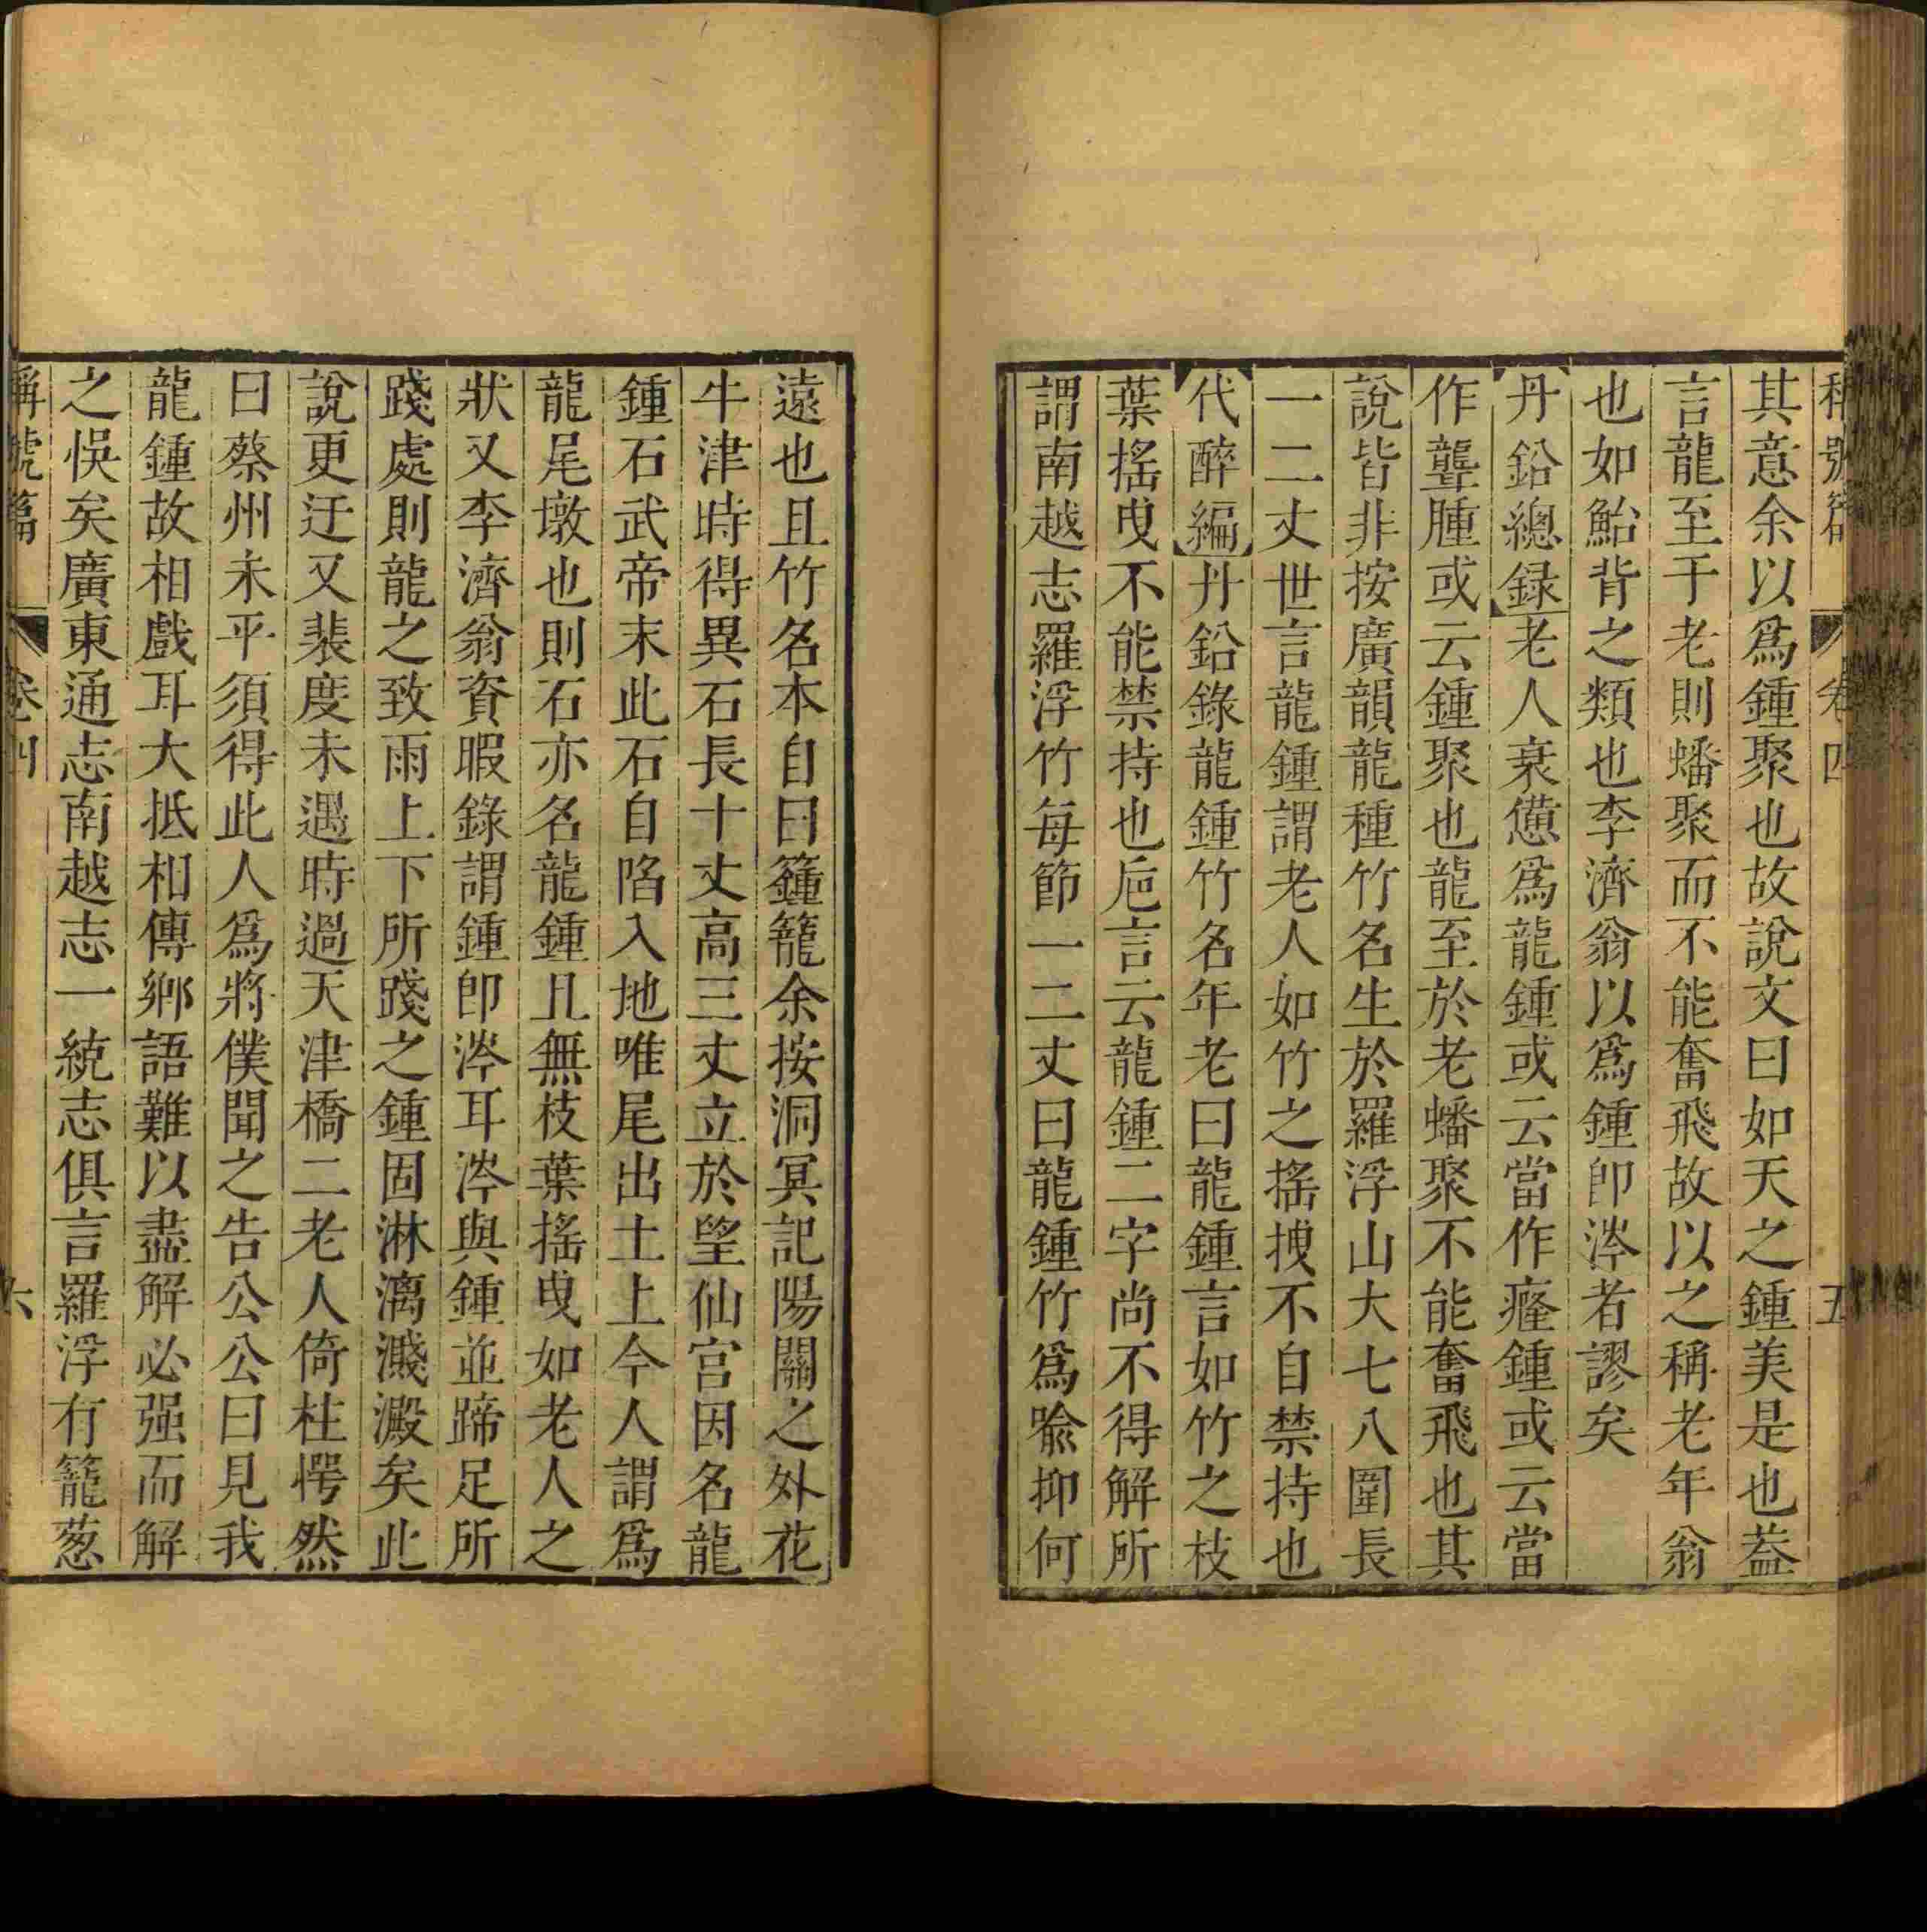 其意余以爲鍾聚也故說文曰如天之鍾美是也葢
言龍至于老則蟠聚而不能奮飛故以之稱老年翁
也如鮐背之類也李濟翁以爲鍾卽涔者謬矣
丹鉛總録老人衰憊爲龍鍾或云當作癃鍾或云當
作聾腫或云鍾聚也龍至於老蟠聚不能奮飛也其
說皆非按廣韻龍種竹名生於羅浮山大七八圍長
一二丈世言龍鍾謂老人如竹之搖拽不自禁持也
代醉編丹鉛錄龍鍾竹名年老曰龍鍾言如竹之枝
葉搖曳不能禁持也巵言云龍鍾二字尚不得解所
謂南越志羅浮竹每節一二丈曰龍鍾竹爲喩抑何
遠也且竹名本自曰籦籠余按洞冥記陽關之外花
牛津時得異石長十丈高三丈立於望仙宫因名龍
鍾石武帝末此石自陷入地唯尾出土上今人謂爲
龍尾墩也則石亦名龍鍾且無枝葉搖曳如老人之
狀又李濟翁資暇錄謂鍾卽涔耳涔與鍾並蹄足所
踐處則龍之致雨上下所踐之鍾固淋漓濺澱矣此
說更迂又裴度未遇時過天津橋二老人倚柱愕然
曰蔡州未平須得此人爲將僕聞之告公公曰見我
龍鍾故相戲耳大抵相傳鄉語難以盡解必强而解
之悞矣廣東通志南越志一統志俱言羅浮有籠葱
稱號篇 卷四 六